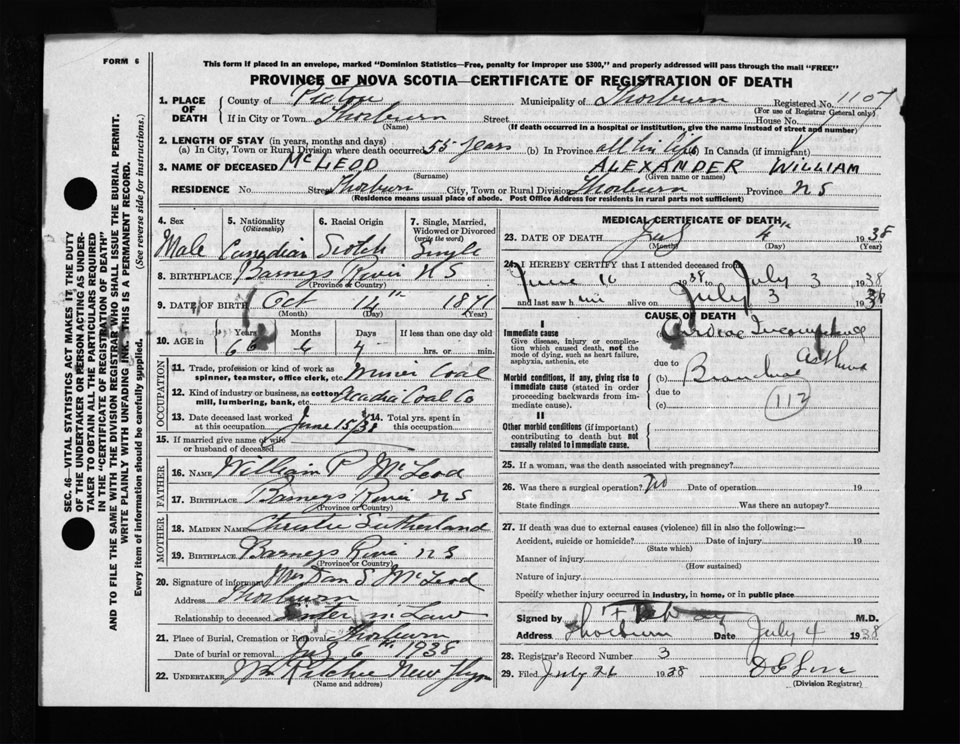 FORM 6
This form if placed in an envelope, marked "Dominion Statistics—Free, penalty for improper use $300," and properly addressed will pass through the mail "FREE"
PROVINCE OF NOVA SCOTIA—CERTIFICATE OF REGISTRATION OF DEATH
1. PLACE OF DEATH County of Pictou Municipality of Thorburn Registered No. 1107
(For use of Registrar General only)
If in City or Town Thorburn Street House No.
(Name) (If death occurred in a hospital or institution, give the name instead of street and number)
2. LENGTH OF STAY (in years, months and days)
(a) In City, Town or Rural Division where death occurred 55 years (b) In Province all his life (c) In Canada (if immigrant)
3. NAME OF DECEASED McLEOD ALEXANDER WILLIAM
(Surname) (Given name or names)
RESIDENCE No. Street Thorburn City, Town or Rural Division Thorburn Province N S
(Residence means usual place of abode. Post Office Address for residents in rural parts not sufficient)
4. Sex Male
5. Nationality (Citizenship) Canadian
6. Racial Origin Scotch
7. Single, Married, Widowed or Divorced (write the word) Single
8. BIRTHPLACE Barneys River N S
(Province or Country)
9. DATE OF BIRTH Oct 14th 1871
(Month) (Day) (Year)
10. AGE in Years 66 Months Days If less than one day old
hrs. or min.
OCCUPATION
11. Trade, profession or kind of work as spinner, teamster, office clerk, etc. Miner Coal
12. Kind of industry or business, as cotton mill, lumbering, bank, etc. Acadia Coal Co
13. Date deceased last worked at this occupation June 15/38
14. Total yrs. spent in this occupation
15. If married give name of wife or husband of deceased
FATHER
16. NAME William P McLeod
17. BIRTHPLACE Barneys River N S
(Province or Country)
MOTHER
18. MAIDEN NAME Christie Sutherland
19. BIRTHPLACE Barneys River N S
(Province or Country)
20. Signature of informant Mrs Dan S McLeod
Address Thorburn
Relationship to deceased Sister in Law
21. Place of Burial, Cremation or Removal Thorburn
Date of burial or removal July 6th 1938
22. UNDERTAKER New
(Name and address)
MEDICAL CERTIFICATE OF DEATH
23. DATE OF DEATH July 4th 1938
(Month) (Day) (Year)
24. I HEREBY CERTIFY that I attended deceased from
June 16 1938 to July 3 1938
and last saw him alive on July 3 1938
CAUSE OF DEATH
I
Immediate cause
Give disease, injury or complication which caused death, not the mode of dying, such as heart failure, asphyxia, asthenia, etc
(a)
due to
Morbid conditions, if any, giving rise to immediate cause (stated in order proceeding backwards from immediate cause).
(b) Bronchial Asthma
due to
(c) 112
II
Other morbid conditions (if important) contributing to death but not causally related to immediate cause.
25. If a woman, was the death associated with pregnancy?
26. Was there a surgical operation? No Date of operation 19
State findings Was there an autopsy?
27. If death was due to external causes (violence) fill in also the following:—
Accident, suicide or homicide? Date of injury 19
(State which)
Manner of injury
(How sustained)
Nature of injury
Specify whether injury occurred in industry, in home, or in public place
Signed by M.D.
Address Thorburn Date July 4 1938
28. Registrar's Record Number 3
29. Filed July 26 1938
(Division Registrar)
SEC. 46—VITAL STATISTICS ACT MAKES IT THE DUTY
OF THE UNDERTAKER OR PERSON ACTING AS UNDER-
TAKER TO OBTAIN ALL THE PARTICULARS REQUIRED
IN THE "CERTIFICATE OF REGISTRATION OF DEATH"
AND TO FILE THE SAME WITH THE DIVISION REGISTRAR WHO SHALL ISSUE THE BURIAL PERMIT.
WRITE PLAINLY WITH UNFADING INK. THIS IS A PERMANENT RECORD.
Every item of information should be carefully supplied. (See reverse side for instructions.)